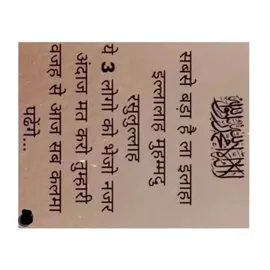 सबसे बड़ा है ला इलाहा
इल्लालाह मुहम्मदु
रसुलुल्लाह
ये 3 लोगो को भेजो नजर
अंदाज मत करो तुम्हारी
वजह से आज सब कलमा
पढेंगे...